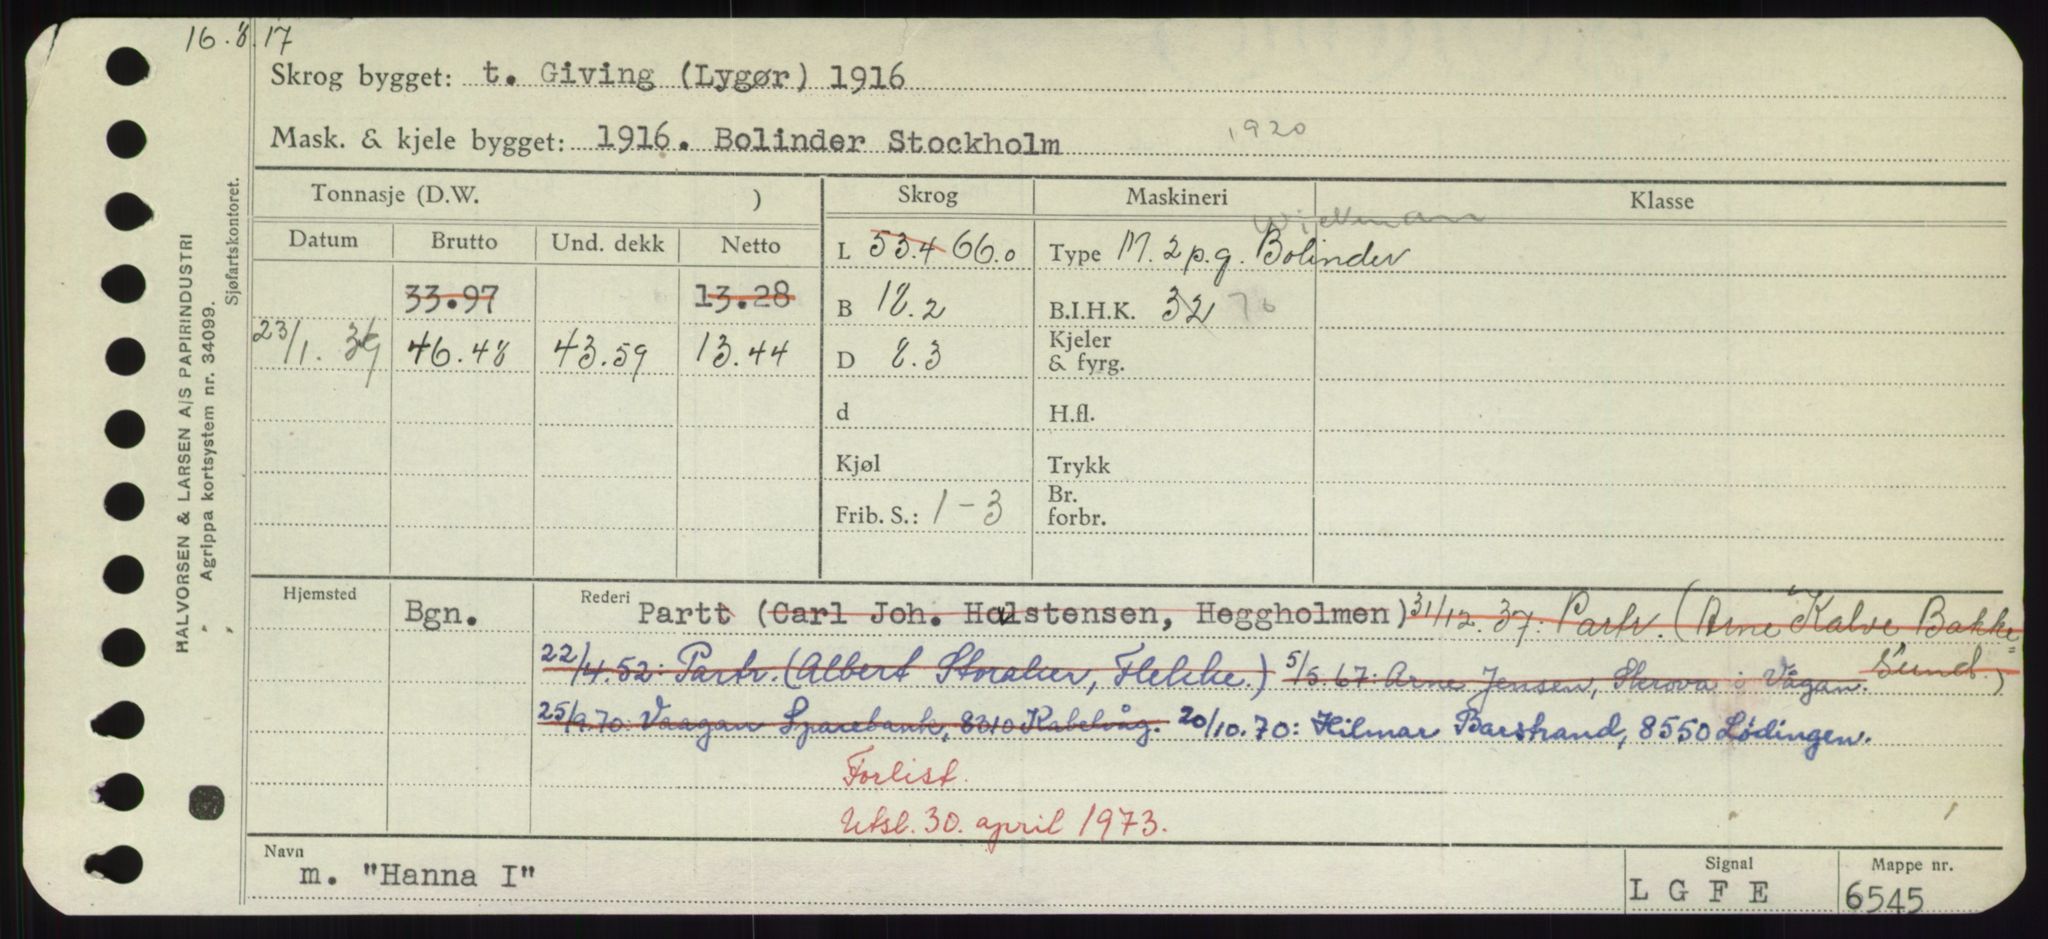 16.8.17
Skrog bygget: t. Giving (Lygør) 1916
Mask. & kjele bygget: 1916. Bolinder Stockholm 1920
Tonnasje (D.W. ) Skrog Maskineri Klasse
Wickman
Datum Brutto Und. dekk Netto L 53.4 66.0 Type M. 2 p.g. Bolinder
33.97 13.28 B 18.2 B.I.H.K. 32 70
23/1.39 46.48 43.59 13.44 D 8.3 Kjeler & fyrg.
d H.fl.
Kjøl Trykk
Frib. S.: 1-3 Br. forbr.
Hjemsted Bgn. Rederi Partt (Carl Joh. Halstensen, Heggholmen) 31/12.37: Partr. (Arne Kalve, Bakke
Sund.)
22/4.52: Partr. (Albert Storaker, Flekke.) 5/5.67: Arne Jensen, Skrova i Vågan.
25/9.70: Vaagan Sparebank, 8310 Kabelvåg. 20/10.70: Hilmar Barstrand, 8550 Lødingen.
Forlist.
Utsl. 30. april 1973.
Navn m. "Hanna I" Signal LGFE Mappe nr. 6545
HALVORSEN & LARSEN A/S PAPIRINDUSTRI
" Agrippa kortsystem nr. 34099.
" Sjøfartskontoret.